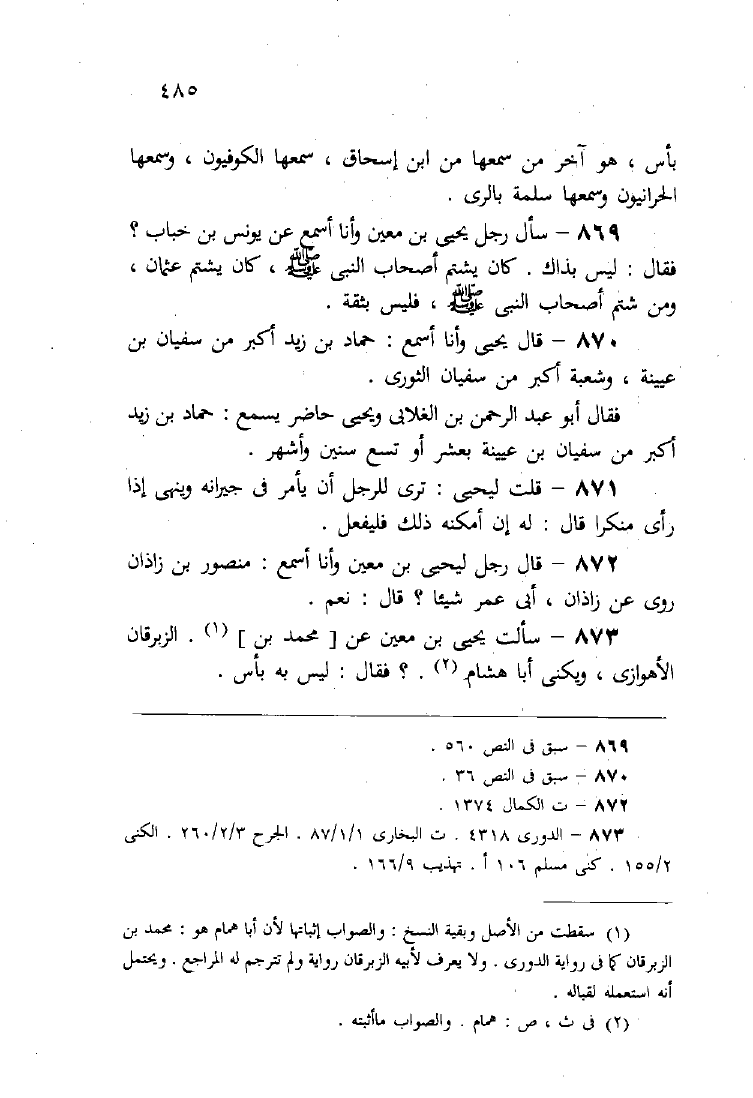 ٤٨٥
بأس ، هو آخر من سمعها من ابن إسحاق ، سمعها الكوفيون ، وسمعها
الحرانيون وسمعها سلمة بالرى .
٨٦٩ – سأل رجل يحيى بن معين وأنا أسمع عن يونس بن خباب ؟
فقال : ليس بذاك . كان يشتم أصحاب النبى ﷺ ، كان يشتم عثمان ،
ومن شتم أصحاب النبى ﷺ ، فليس بثقة .
٨٧٠ – قال يحيى وأنا أسمع : حماد بن زيد أكبر من سفيان بن
عيينة ، وشعبة أكبر من سفيان الثورى .
فقال أبو عبد الرحمن بن الغلابى ويحيى حاضر يسمع : حماد بن زيد
أكبر من سفيان بن عيينة بعشر أو تسع سنين وأشهر .
٨٧١ – قلت ليحيى : ترى للرجل أن يأمر فى جيرانه وينهى إذا
رأى منكرا قال : له إن أمكنه ذلك فليفعل .
٨٧٢ – قال رجل ليحيى بن معين وأنا أسمع : منصور بن زاذان
روى عن زاذان ، أبى عمر شيئا ؟ قال : نعم .
٨٧٣ – سألت يحيى بن معين عن [ محمد بن ] (١) . الزبرقان
الأهوازى ، ويكنى أبا هشام (٢) . ؟ فقال : ليس به بأس .
٨٦٩ – سبق فى النص ٥٦٠ .
٨٧٠ – سبق فى النص ٣٦ .
٨٧٢ – ت الكمال ١٣٧٤ .
٨٧٣ – الدورى ٤٣١٨ . ت البخارى ٨٧/١/١ . الجرح ٢٦٠/٢/٣ . الكنى
١٥٥/٢ . كنى مسلم ١٠٦ أ . تهذيب ١٦٦/٩ .
(١) سقطت من الأصل وبقية النسخ : والصواب إثباتها لأن أبا همام هو : محمد بن
الزبرقان كما فى رواية الدورى . ولا يعرف لأبيه الزبرقان رواية ولم تترجم له المراجع . ويحتمل
أنه استعمله لقباله .
(٢) فى ث ، ص : همام . والصواب ماأثبته .